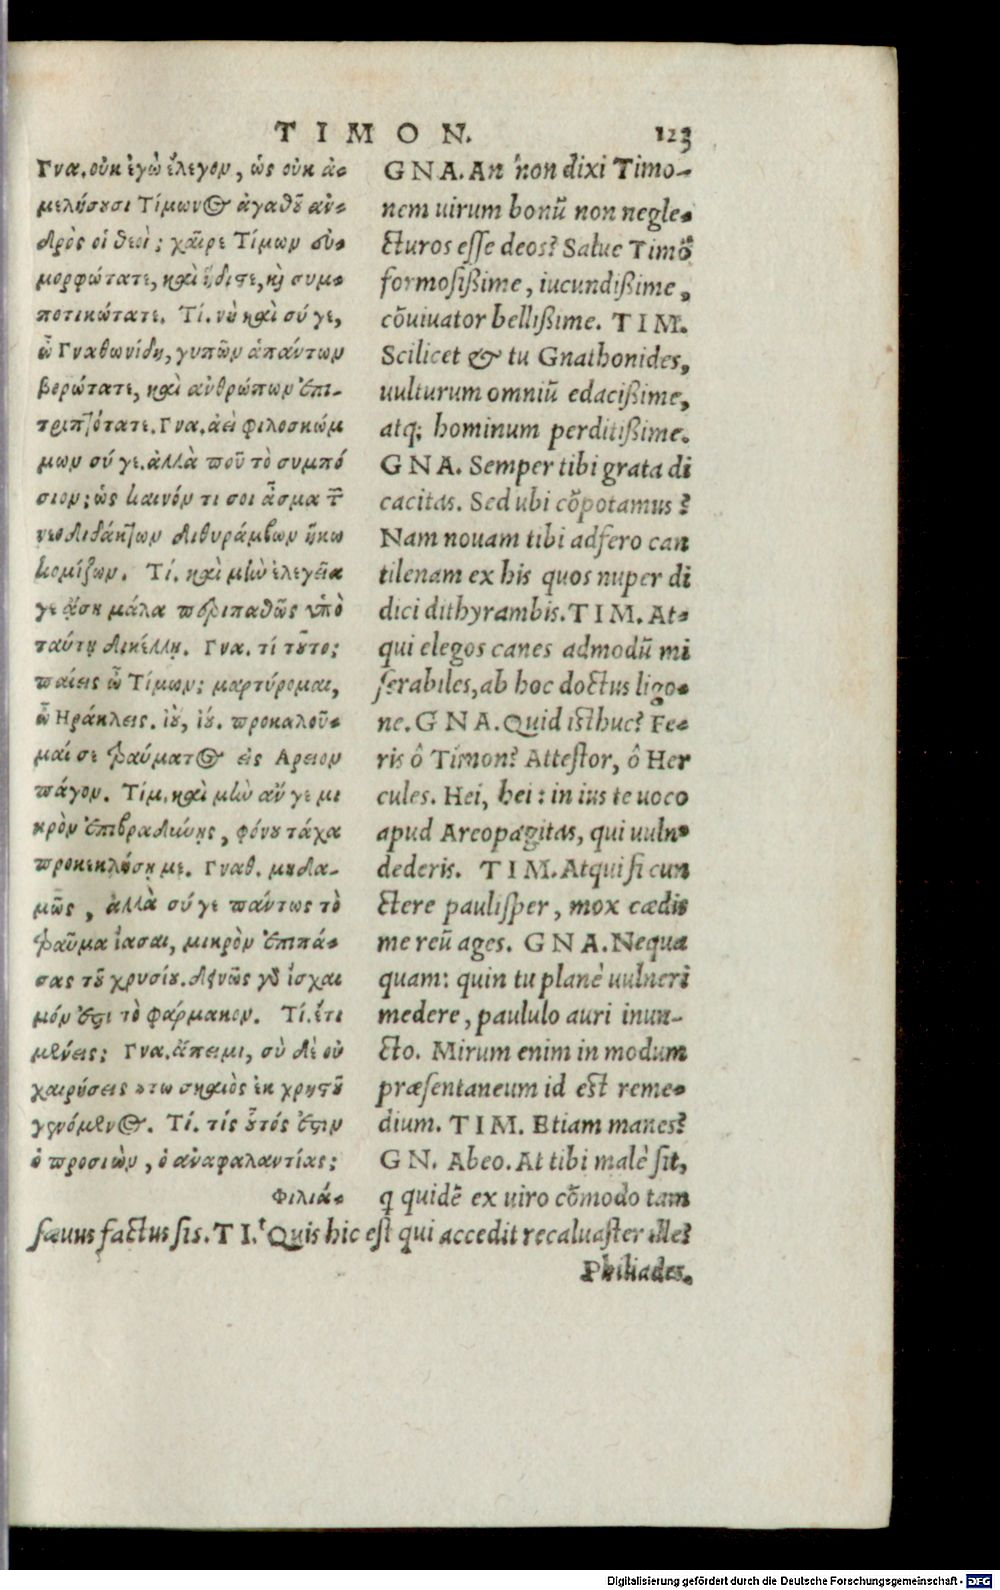 TIMON. 123
Γνα. οὐκ ἐγὼ ἔλεγον, ὡς οὐκ ἀ-
μελήσουσι Τίμωνος ἀγαθοῦ ἀν-
δρὸς οἱ θεοί; χαῖρε Τίμων εὐ-
μορφώτατε, καὶ ἥδιστε, καὶ συμ-
ποτικώτατε. Τί. νὴ καὶ σύ γε,
ὦ Γναθωνίδη, γυπῶν ἁπάντων
βορώτατε, καὶ ἀνθρώπων ἐπι-
τριπτότατε. Γνα. ἀεὶ φιλοσκώμ
μων σύ γε. ἀλλὰ ποῦ τὸ συμπό
σιον; ὡς καινόν τι σοι ᾆσμα τῶν
νεοδιδάκτων διθυράμβων ἥκω
κομίζων. Τί. καὶ μὴν ἐλεγεῖα
γε ᾄσῃ μάλα περιπαθῶς ὑπὸ
ταύτῃ δικέλλῃ. Γνα. τί τοῦτο;
παίεις ὦ Τίμων; μαρτύρομαι,
ὦ Ηράκλεις. ἰοὺ, ἰού. προκαλοῦ-
μαί σε τραύματος εἰς Αρειον
πάγον. Τίμ. καὶ μὴν ἄν γε μι
κρὸν ἐπιβραδύνῃς, φόνου τάχα
προκεκλήσῃ με. Γναθ. μηδα-
μῶς, ἀλλὰ σύ γε πάντως τὸ
τραῦμα ἴασαι, μικρὸν ἐπιπά-
σας τοῦ χρυσίου. δεινῶς γὰρ ἴσχαι
μόν ἐστι τὸ φάρμακον. Τί. ἔτι
μένεις; Γνα. ἄπειμι, σὺ δὲ οὐ
χαιρήσεις οὕτω σκαιὸς ἐκ χρηστοῦ
γενόμενος. Τί. τίς οὗτός ἐστιν
ὁ προσιὼν, ὁ ἀναφαλαντίας;
Φιλιά-
GNA. An non dixi Timo-
nem uirum bonū non negle-
cturos esse deos? Salue Timō
formosißime, iucundißime,
cōuiuator bellißime. TIM.
Scilicet & tu Gnathonides,
uulturum omniū edacißime,
atq; hominum perditißime.
GNA. Semper tibi grata di
cacitas. Sed ubi cōpotamus?
Nam nouam tibi adfero can
tilenam ex his quos nuper di
dici dithyrambis. TIM. At-
qui elegos canes admodū mi
serabiles, ab hoc doctus ligo-
ne. GNA. Quid isthuc? Fe-
ris ô Timon? Attestor, ô Her
cules. Hei, hei: in ius te uoco
apud Areopagitas, qui uuln-
dederis. TIM. Atqui si cun
ctere paulisper, mox cædis
me reū ages. GNA. Nequa
quam: quin tu planè uulneri
medere, paululo auri inun-
cto. Mirum enim in modum
præsentaneum id est reme-
dium. TIM. Etiam manes?
GN. Abeo. At tibi malè sit,
q quidē ex uiro cōmodo tam
sæuus factus sis. TI. Quis hic est qui accedit recaluaster ille?
Philiades.
Digitalisierung gefördert durch die Deutsche Forschungsgemeinschaft - DFG